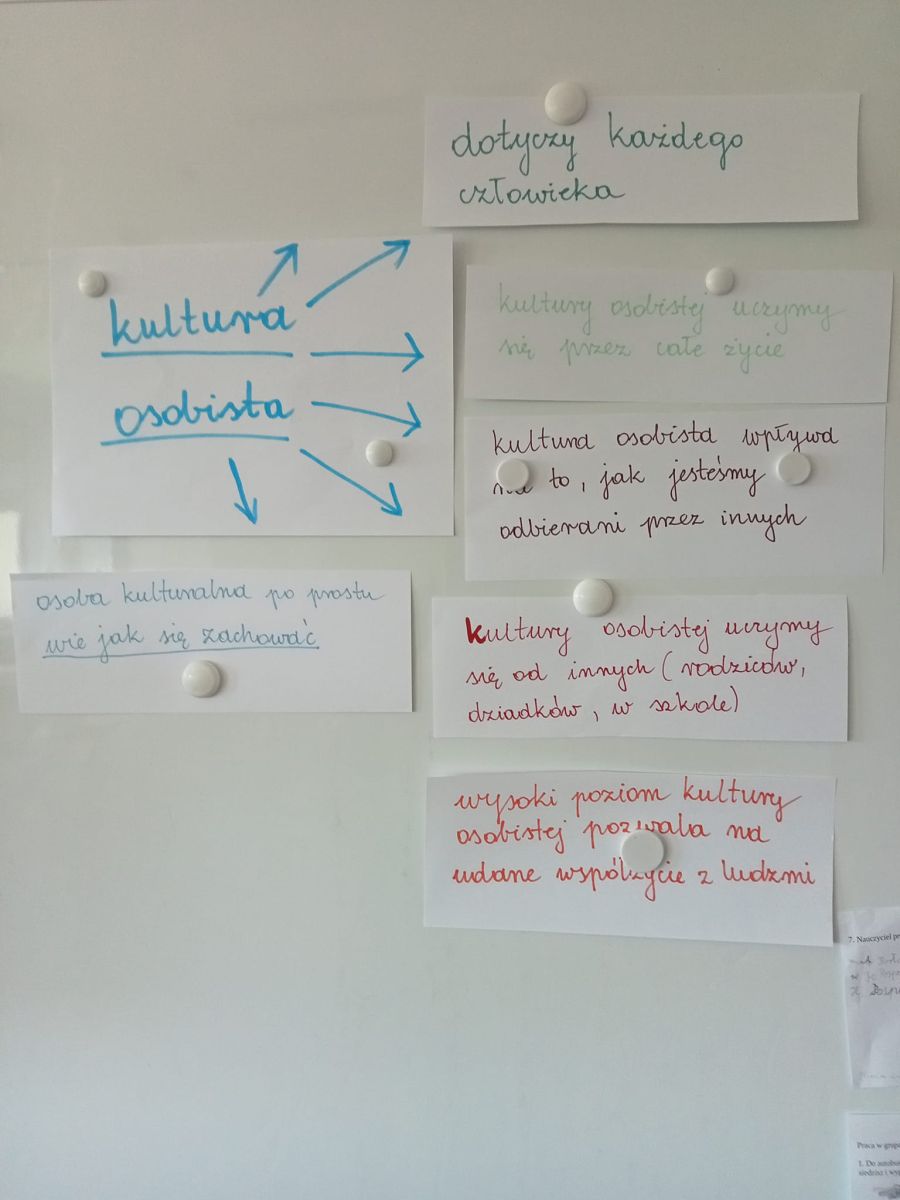 dotyczy każdego
człowieka
kultura
osobista
kultury osobistej uczymy
się przez całe życie
kultura osobista wpływa
to, jak jesteśmy
odbierani przez innych
osoba kulturalna po prostu
wie jak się zachować
kultury osobistej uczymy
się od innych (rodziców,
dziadków, w szkole)
wysoki poziom kultury
osobistej pozwala na
udane współżycie z ludźmi
7. Nauczyciel
Praca w
1. Do
siedzisz i